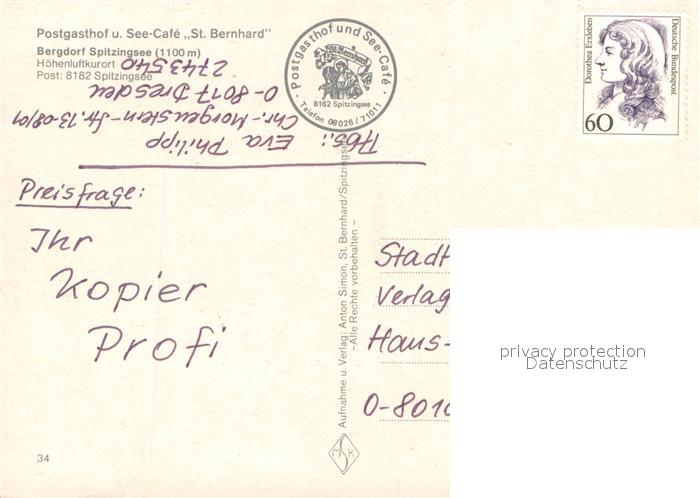 Postgasthof u. See-Café „St. Bernhard"
Bergdorf Spitzingsee (1100 m)
Höhenluftkurort
Post: 8182 Spitzingsee
· Postgasthof und See-Café ·
St. Bernhard
8162 Spitzingsee
Telefon 08026 / 71011
Dorothea Erxleben
Deutsche Bundespost
60
Abs.: Eva Philipp
Chr.-Morgenstern-Str. 13-08/01
O-8017 Dresden
2743540
Preisfrage:
Ihr
Kopier
Profi
Aufnahme u. Verlag: Anton Simon, St. Bernhard/Spitzingsee
– Alle Rechte vorbehalten –
Stadt
Verlag
Hans-
O-8010
privacy protection
Datenschutz
MSK
34